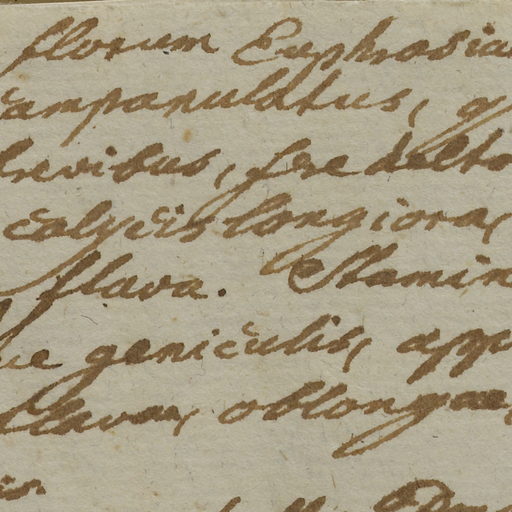 florum Euphrasiae
campanulatus,
brevibus, fere delto
calycis longiora,
flava. Stamin
ue geniculis, app
flavae, oblongae,
is.